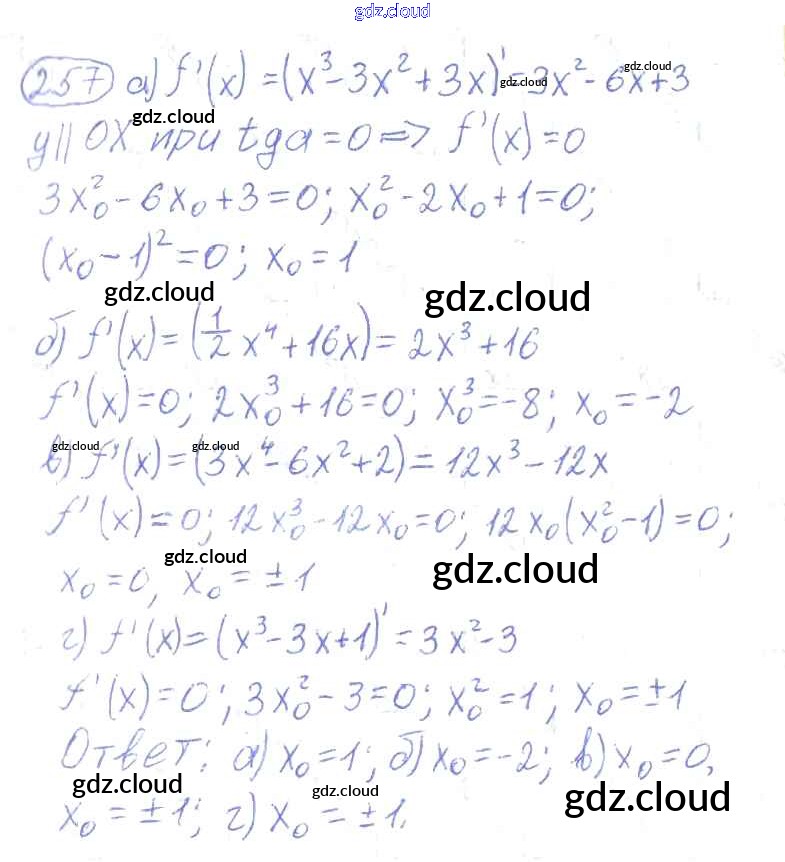 gdz.cloud
257 а) f'(x) = (x³-3x²+3x)'=3x²-6x+3
gdz.cloud gdz.cloud
gdz.cloud
y || OX при tgα=0 => f'(x)=0
3x₀²-6x₀+3=0; x₀²-2x₀+1=0;
(x₀-1)²=0; x₀=1
gdz.cloud gdz.cloud
б) f'(x)=(1/2 x⁴+16x)=2x³+16
f'(x)=0; 2x₀³+16=0; x₀³=-8; x₀=-2
gdz.cloud gdz.cloud
в) f'(x)=(3x⁴-6x²+2)=12x³-12x
f'(x)=0; 12x₀³-12x₀=0; 12x₀(x₀²-1)=0;
gdz.cloud gdz.cloud
x₀=0, x₀=±1
г) f'(x)=(x³-3x+1)'=3x²-3
f'(x)=0; 3x₀²-3=0; x₀²=1; x₀=±1
Ответ: а) x₀=1; б) x₀=-2; в) x₀=0,
gdz.cloud gdz.cloud gdz.cloud
x₀=±1; г) x₀=±1.